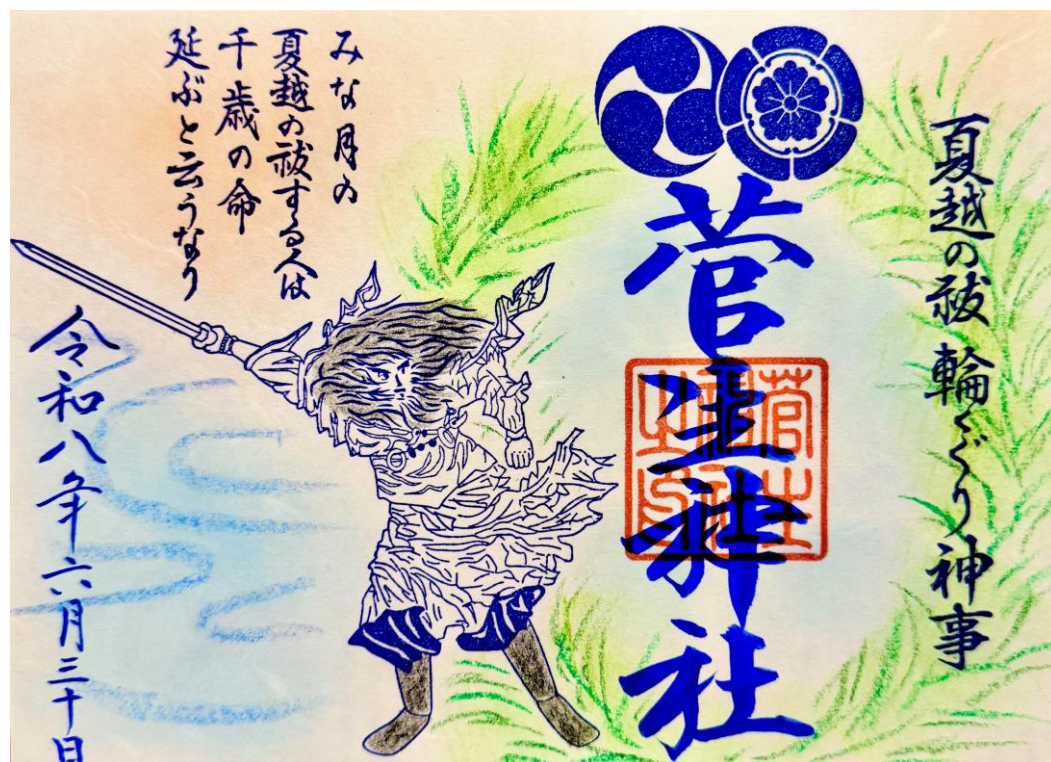 夏越の祓 輪くぐり神事
菅生神社
菅生神社之印
みな月の
夏越の祓する人は
千歳の命
延ぶと云うなり
令和八年六月三十日